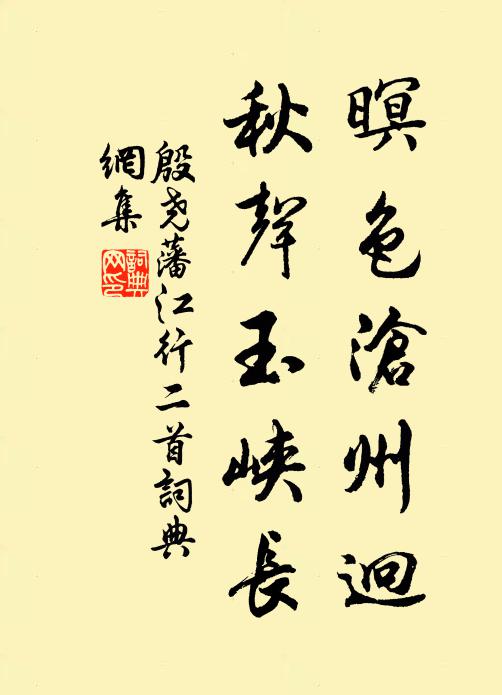 暝色滄州迥
秋聲玉峽長
殷尧藩江行二首詞典
網集
詞典
网印